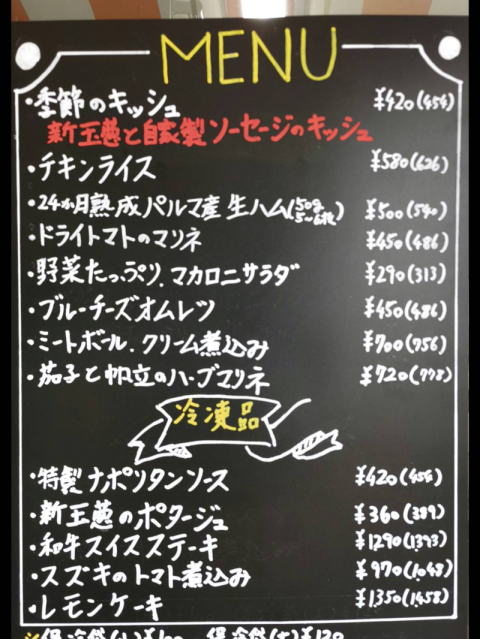 MENU
・季節のキッシュ ¥420(454)
新玉葱と自家製ソーセージのキッシュ
・チキンライス ¥580(626)
・24か月熟成パルマ産生ハム(50g 5~6枚) ¥500(540)
・ドライトマトのマリネ ¥450(486)
・野菜たっぷり、マカロニサラダ ¥290(313)
・ブルーチーズオムレツ ¥450(486)
・ミートボール、クリーム煮込み ¥700(756)
・茄子と帆立のハーブマリネ ¥720(778)
冷凍品
・特製ナポリタンソース ¥420(454)
・新玉葱のポタージュ ¥360(389)
・和牛スイスステーキ ¥1290(1393)
・スズキのトマト煮込み ¥970(1,048)
・レモンケーキ ¥1350(1,458)